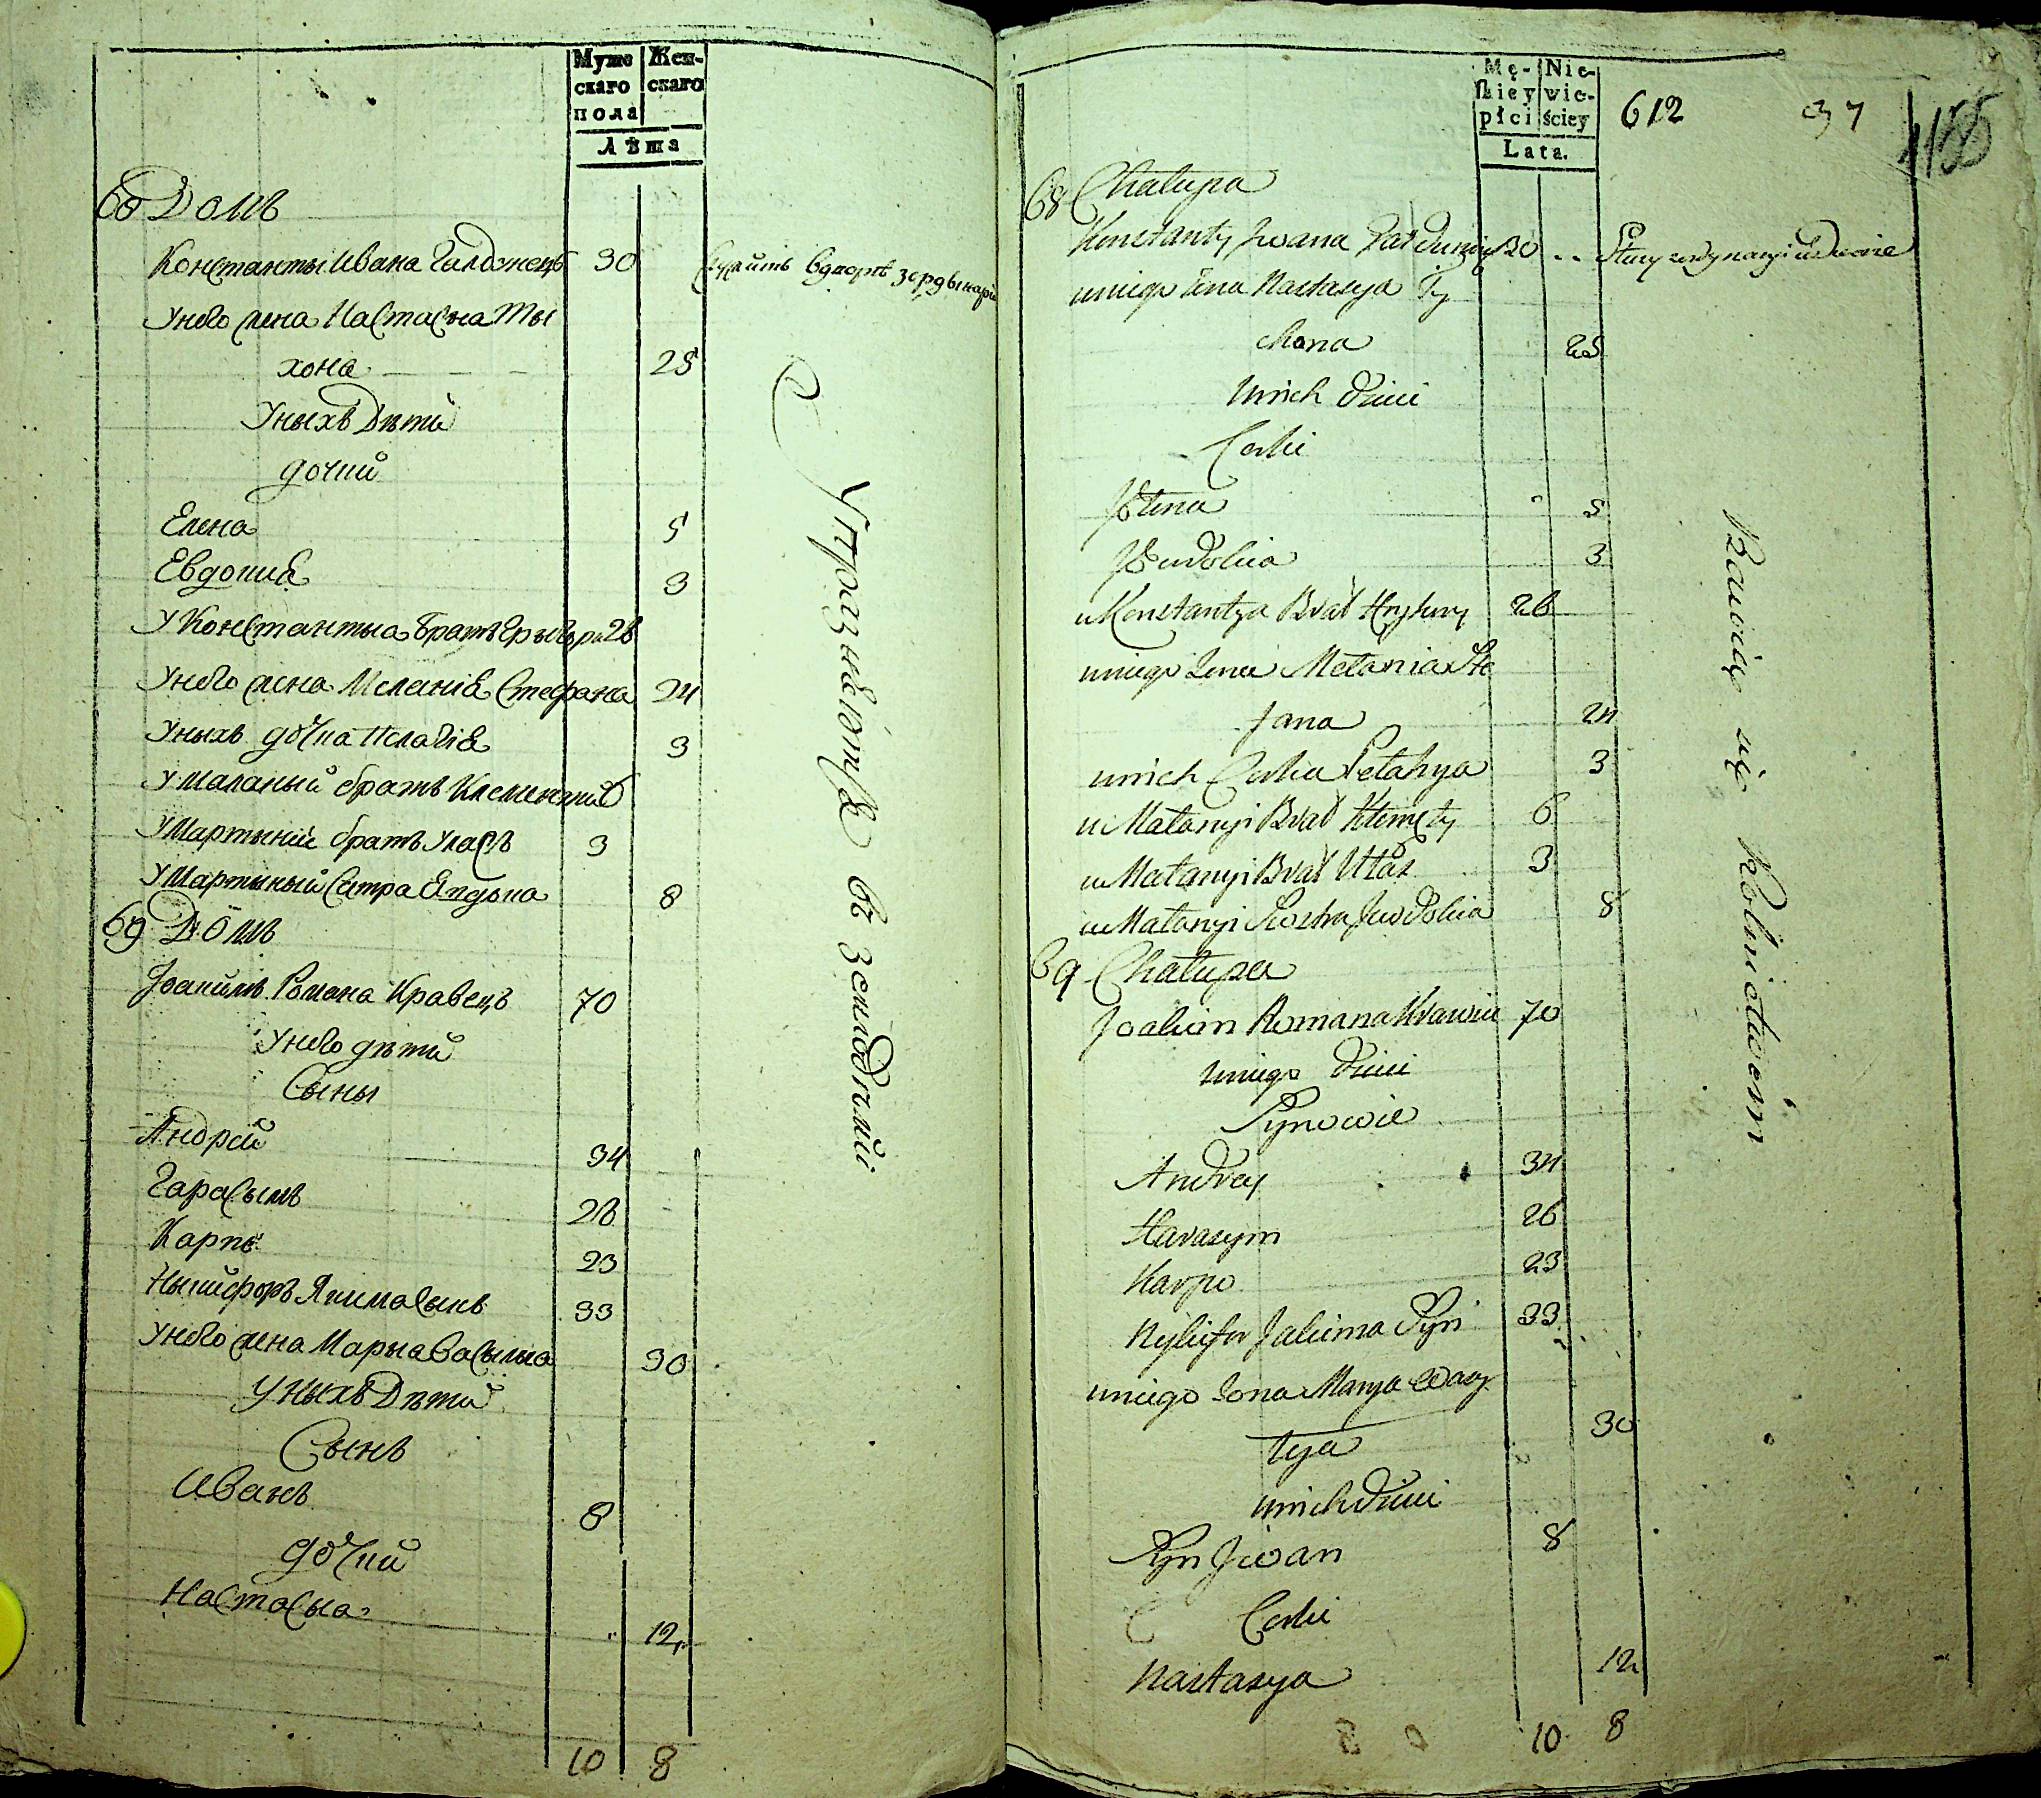 Муже
скаго
пола
Жен-
скаго
Лѣта
68 Домъ
Константы Ивана Галдонецъ 30
Служитъ в дворѣ з ордынаріи
Унего жена Настасыа Ты
хона 25
Уныхъ Дѣти
дочки
Елена 5
Евдокиа 3
У Константыа братъ Грыгоры 26
Унего жена Меланіа Стефана 24
Уныхъ дочка Пелагіа 3
У Маланыи братъ Клементий 6
У Мартыний братъ Уласъ 3
У Мартыный Сестра Евдока 8
69 Домъ
Іоакимъ Романа Кравецъ 70
Унего дѣти
Сыны
Андрей 34
Гарасымъ 26
Карпъ 23
Ныкифоръ Якима сынъ 33
Унего жена Марыа Васылыа 30
Уныхъ Дѣти
Сынъ
Иванъ 8
дочки
Настасыа 12
10 8
Упражнѣютъся въ земледѣлій
Mę-
skiey
płci
Nie-
wie-
ściey
Lata.
612
37
1155
68 Chałupa
Konstanty Jwana 30
Służy w dworze
uniego żona Nastasya Ty
chona 25
unich dzieci
Corki
Jełena 5
Jewdokia 3
u Konstantya Brat Hryhory 26
uniego żona Melania Ste
fana 24
unich Corka Pelahya 3
u Małanyi Brat Klemęty 6
u Małanyi Brat Ułas 3
u Małanyi Siostra Jewdokia 8
69 Chałupa
Joakim Romana Krawiec 70
uniego dzieci
Synowie
Andrey 34
Harasym 26
Karpo 23
Nykifor Jakima Syn 33
uniego żona Marya Wasy
lya 30
unich dzieci
Syn Jwan 8
Corki
Nastasya 12
10 8
Bawią się Rolnictwem